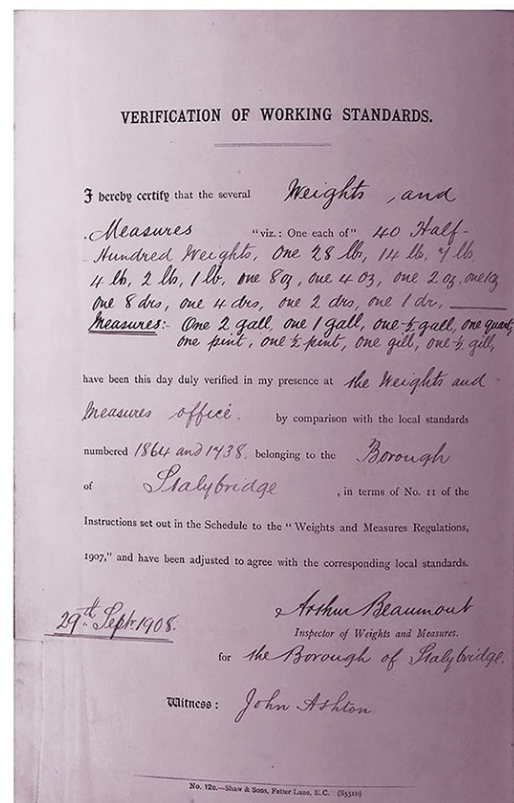 VERIFICATION OF WORKING STANDARDS.
I hereby certify that the several Weights and
Measures "viz.: One each of" 40 Half-
Hundred Weights, One 28 lbs, 14 lb, 7 lbs,
4 lb, 2 lbs, 1 lb, one 8 oz, one 4 oz, one 2 oz, one 1 oz
one 8 drs, one 4 drs, one 2 drs, one 1 dr,
Measures:- One 2 gall, one 1 gall, one ½ gall, one quart,
one pint, one ½ pint, one gill, one ½ gill,
have been this day duly verified in my presence at the Weights and
Measures office. by comparison with the local standards
numbered 1864 and 1738. belonging to the Borough
of Stalybridge, in terms of No. 11 of the
Instructions set out in the Schedule to the "Weights and Measures Regulations,
1907," and have been adjusted to agree with the corresponding local standards.
Arthur Beaumont
29th Sept. 1908.
Inspector of Weights and Measures.
for the Borough of Stalybridge.
Witness: John Ashton
No. 12c.—Shaw & Sons, Fetter Lane, E.C.